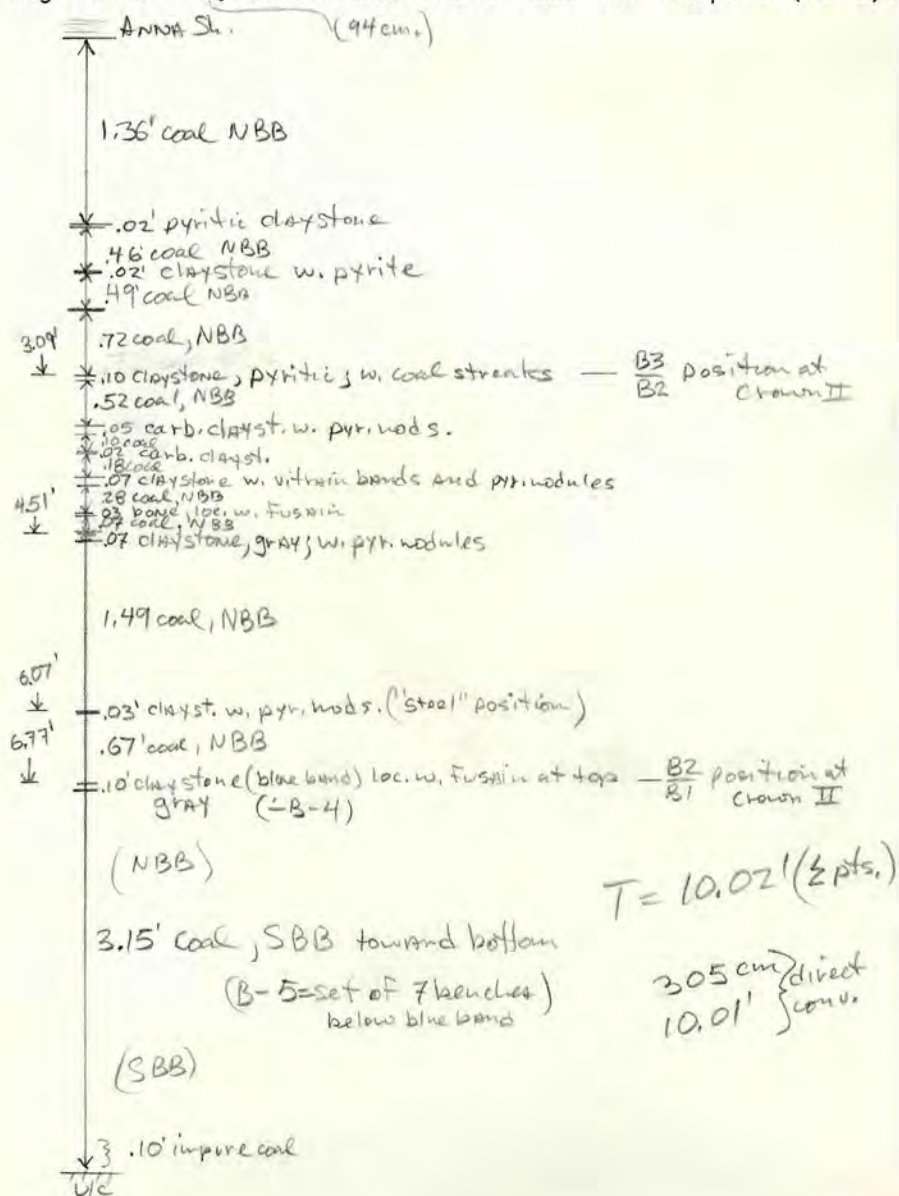 ANNA Sh. (94 cm.)
1.36' coal NBB
.02' pyritic claystone
.46' coal NBB
.02' claystone w. pyrite
.49' coal NBB
.72 coal, NBB
3.09'
.10 claystone, pyritic; w. coal streaks — B3/B2 position at Crown II
.52 coal, NBB
.05 carb. clayst. w. pyr. nods.
.10 coal
.02 carb. clayst.
.18 coal
.07 claystone w. vitrain bands and pyr. nodules
.28 coal, NBB
4.51'
.03 bone, loc. w. fusain
.07 coal, NBB
.07 claystone, gray; w. pyr. nodules
1.49 coal, NBB
6.07'
.03' clayst. w. pyr. nods. ("steel" position)
6.77'
.67' coal, NBB
.10' claystone (blue band) loc. w. fusain at top — B2/B1 position at Crown II
gray (-B-4)
(NBB)
T = 10.02' (Σ pts.)
3.15' coal, SBB toward bottom
305 cm } direct
10.01' } conv.
(B-5=set of 7 benches)
below blue band
(SBB)
} .10' impure coal
U/C